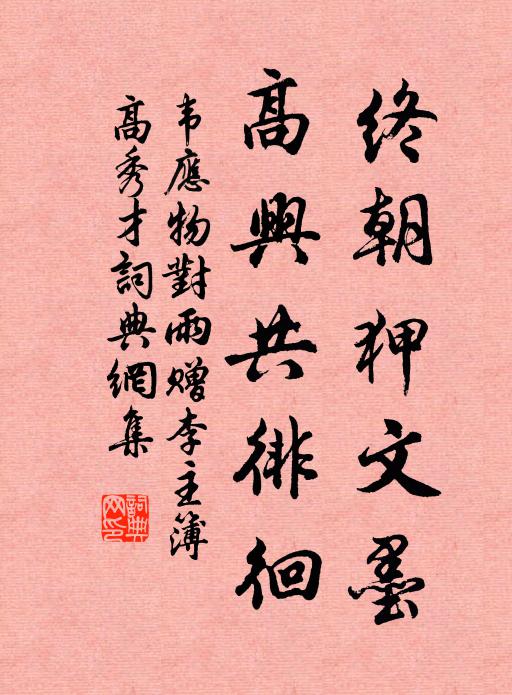 終朝狎文墨
高興共徘徊
韦應物對雨赠李主簿
高秀才詞典網集
詞典
网印